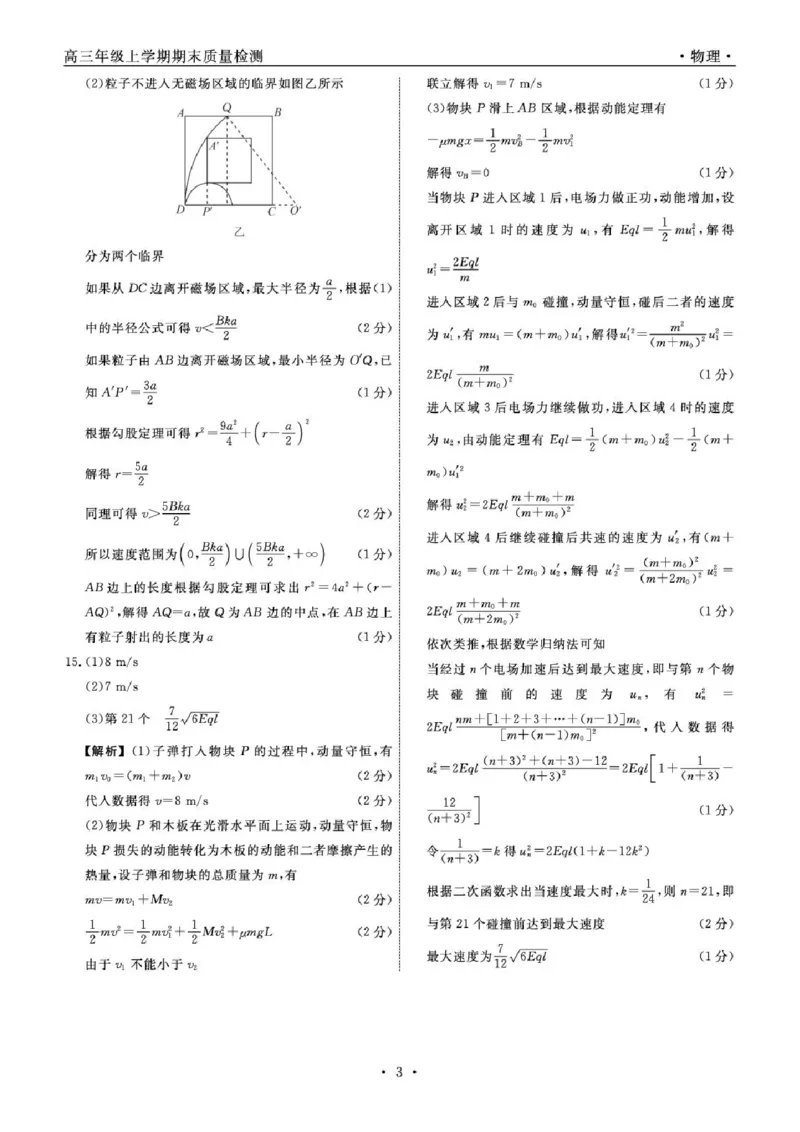 高三年级上学期期末质量检测
·物理·
(2)粒子不进入无磁场区域的临界如图乙所示
A Q B
A′
D P′ C O′
乙
分为两个临界
如果从 DC 边离开磁场区域,最大半径为 a/2,根据(1)
中的半径公式可得 v<Bka/2 (2分)
如果粒子由 AB 边离开磁场区域,最小半径为 O′Q,已
知 A′P′=3a/2 (1分)
根据勾股定理可得 r²=9a²/4+(r-a/2)²
解得 r=5a/2
同理可得 v>5Bka/2 (2分)
所以速度范围为(0,Bka/2)∪(5Bka/2,+∞) (1分)
AB 边上的长度根据勾股定理可求出 r²=4a²+(r-
AQ)²,解得 AQ=a,故 Q 为 AB 边的中点,在 AB 边上
有粒子射出的长度为 a (1分)
15.(1)8 m/s
(2)7 m/s
(3)第 21 个 7/12 √6Eql
【解析】(1)子弹打入物块 P 的过程中,动量守恒,有
m₁v₀=(m₁+m₂)v (2分)
代入数据得 v=8 m/s (2分)
(2)物块 P 和木板在光滑水平面上运动,动量守恒,物
块 P 损失的动能转化为木板的动能和二者摩擦产生的
热量,设子弹和物块的总质量为 m,有
mv=mv₁+Mv₂ (2分)
1/2 mv²=1/2 mv₁²+1/2 Mv₂²+μmgL (2分)
由于 v₁ 不能小于 v₂
联立解得 v₁=7 m/s (1分)
(3)物块 P 滑上 AB 区域,根据动能定理有
-μmgx=1/2 mv_B²-1/2 mv₁²
解得 v_B=0 (1分)
当物块 P 进入区域 1 后,电场力做正功,动能增加,设
离开区域 1 时的速度为 u₁,有 Eql=1/2 mu₁²,解得
u₁²=2Eql/m
进入区域 2 后与 m₀ 碰撞,动量守恒,碰后二者的速度
为 u₁′,有 mu₁=(m+m₀)u₁′,解得u₁′²=m²/(m+m₀)² u₁²=
2Eql m/(m+m₀)² (1分)
进入区域 3 后电场力继续做功,进入区域 4 时的速度
为 u₂,由动能定理有 Eql=1/2 (m+m₀)u₂²-1/2 (m+
m₀)u₁′²
解得 u₂²=2Eql (m+m₀+m)/(m+m₀)²
进入区域 4 后继续碰撞后共速的速度为 u₂′,有(m+
m₀)u₂=(m+2m₀)u₂′,解得 u₂′²=(m+m₀)²/(m+2m₀)² u₂²=
2Eql (m+m₀+m)/(m+2m₀)² (1分)
依次类推,根据数学归纳法可知
当经过 n 个电场加速后达到最大速度,即与第 n 个物
块碰撞前的速度为 uₙ,有 uₙ²=
2Eql (nm+[1+2+3+···+(n-1)]m₀)/[m+(n-1)m₀]²,代入数据得
uₙ²=2Eql ((n+3)²+(n+3)-12)/(n+3)²=2Eql[1+1/(n+3)-
12/(n+3)²] (1分)
令 1/(n+3)=k 得 uₙ²=2Eql(1+k-12k²)
根据二次函数求出当速度最大时,k=1/24,则 n=21,即
与第 21 个碰撞前达到最大速度 (2分)
最大速度为 7/12 √6Eql (1分)
· 3 ·